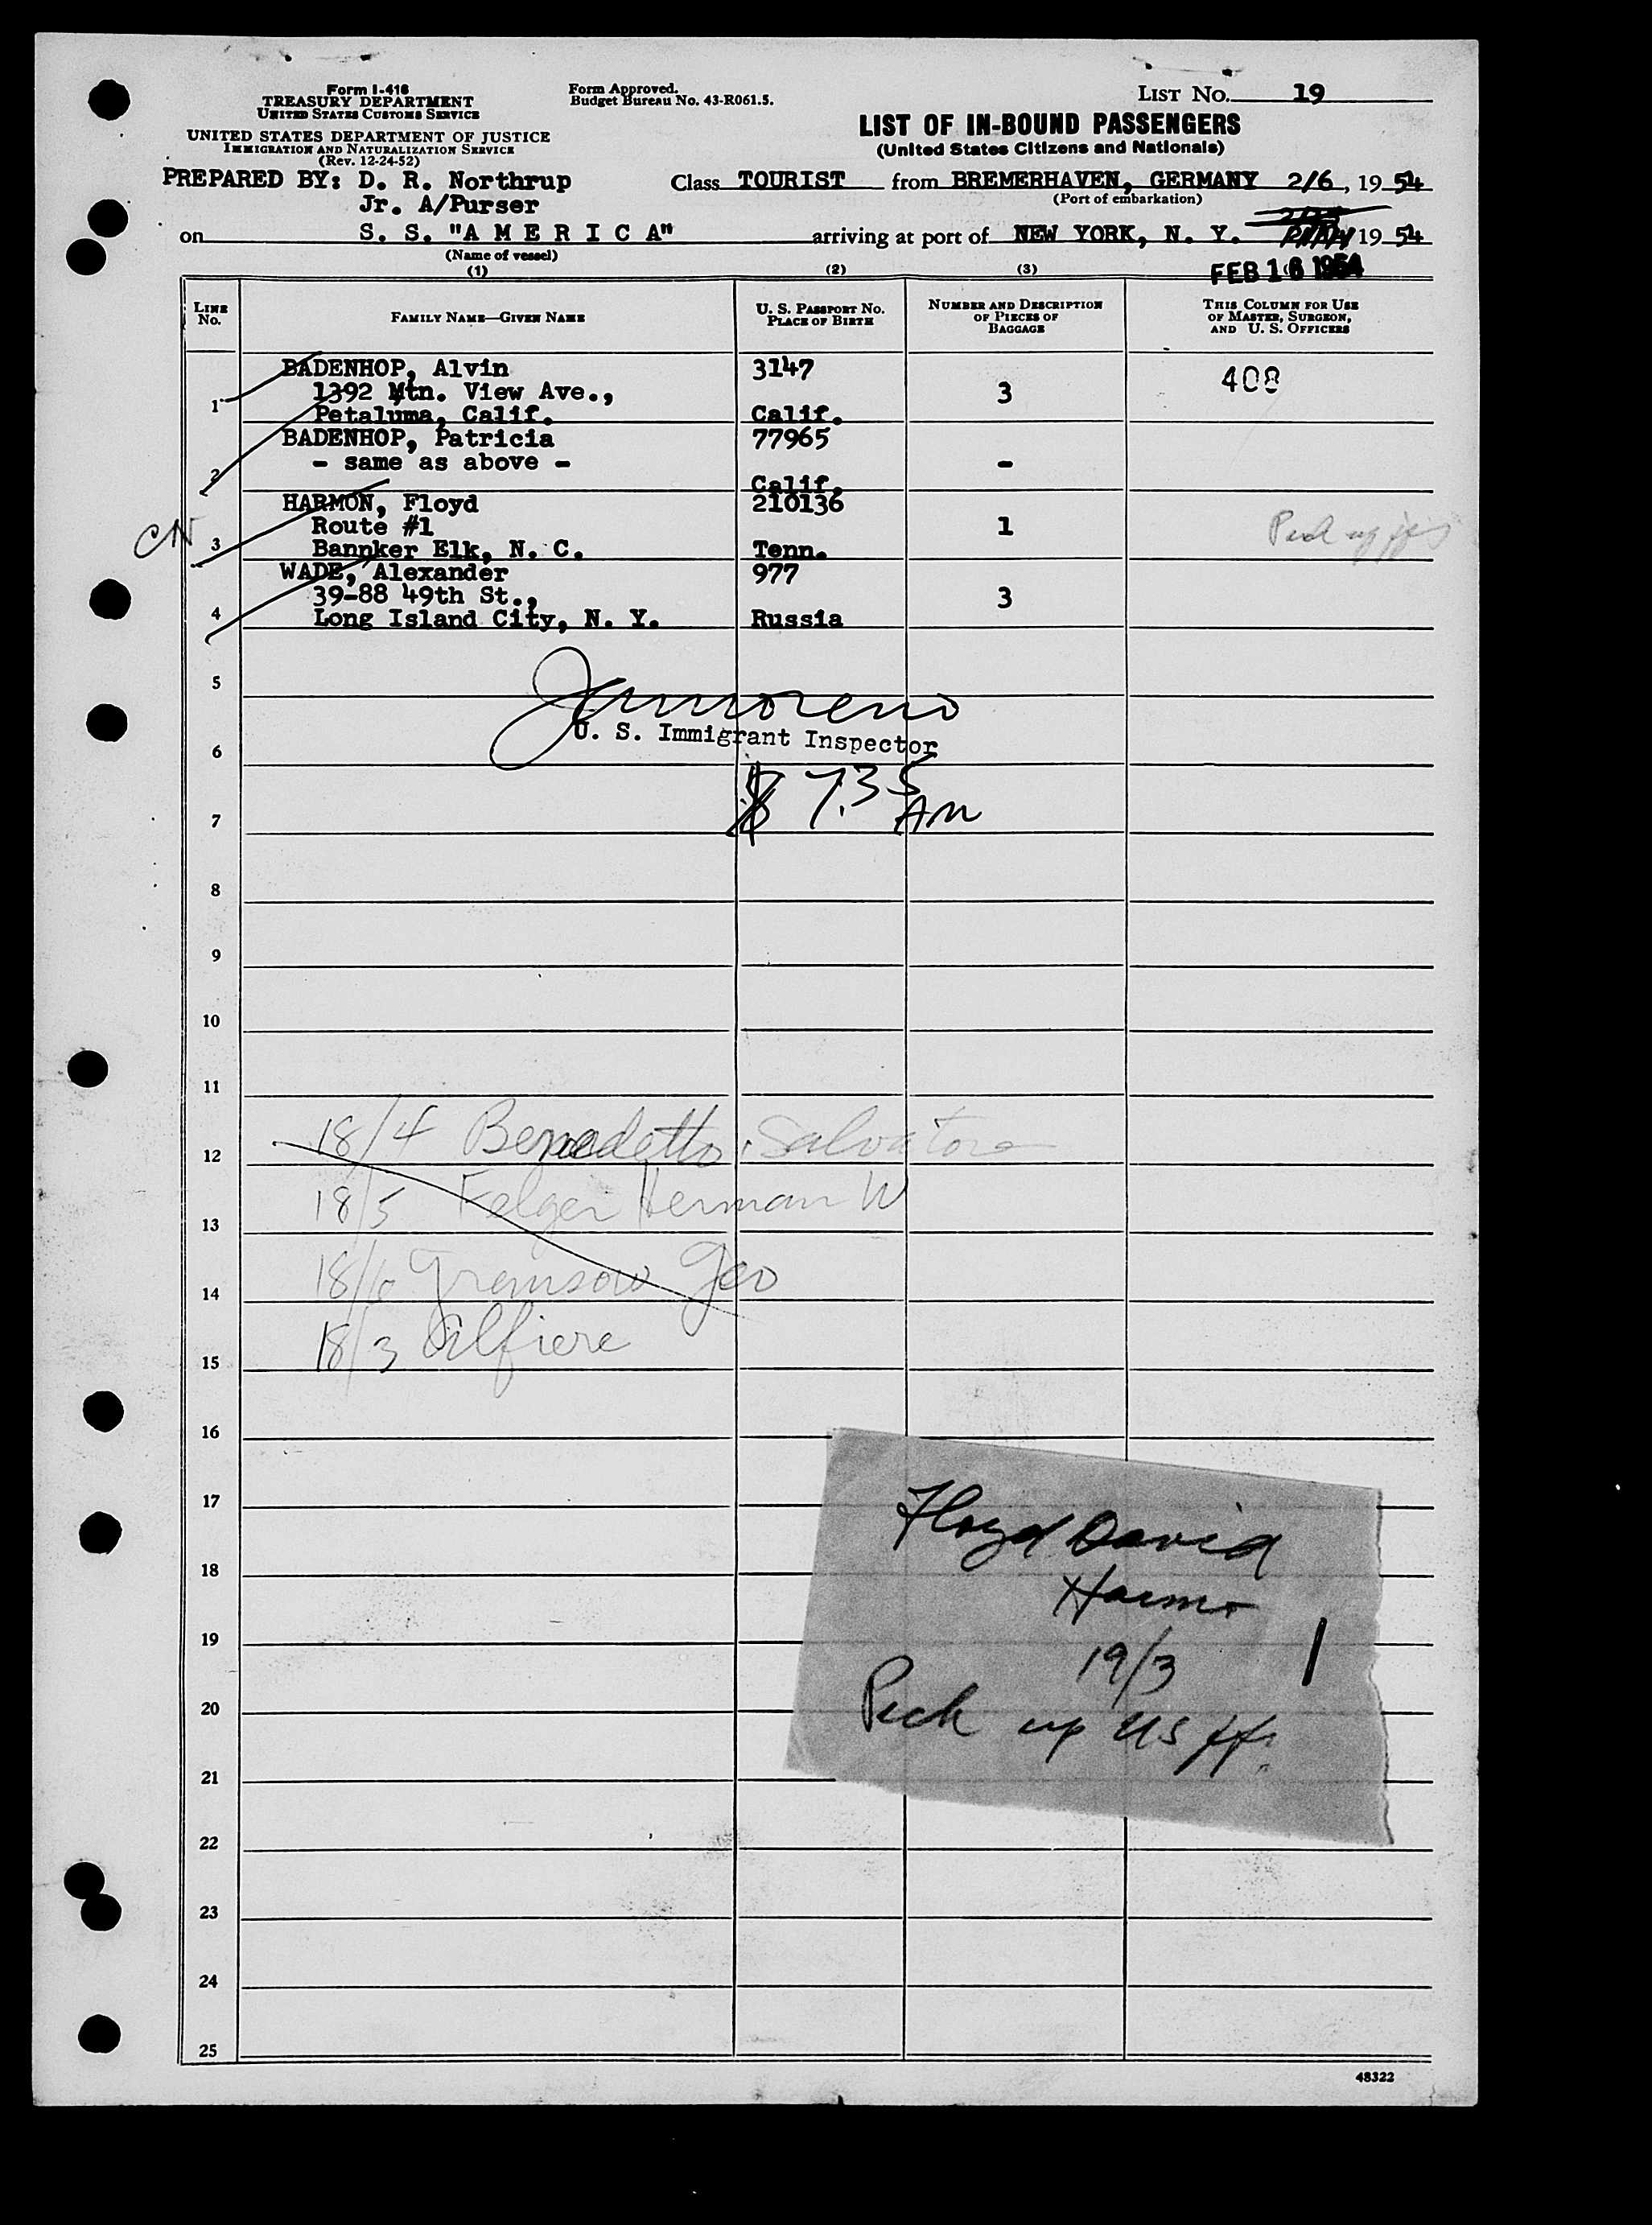 Form I-416
TREASURY DEPARTMENT
UNITED STATES CUSTOMS SERVICE
UNITED STATES DEPARTMENT OF JUSTICE
IMMIGRATION AND NATURALIZATION SERVICE
(Rev. 12-24-52)
Form Approved.
Budget Bureau No. 43-R061.5.
LIST No. 19
LIST OF IN-BOUND PASSENGERS
(United States Citizens and Nationals)
PREPARED BY: D. R. Northrup
Jr. A/Purser
Class TOURIST from BREMERHAVEN, GERMANY 2/6, 1954
(Port of embarkation)
on S. S. "A M E R I C A" arriving at port of NEW YORK, N. Y. 1954
(Name of vessel)
FEB 16 1954
(1) (2) (3)
LINE No. FAMILY NAME—GIVEN NAME U. S. PASSPORT No. PLACE OF BIRTH NUMBER AND DESCRIPTION OF PIECES OF BAGGAGE THIS COLUMN FOR USE OF MASTER, SURGEON, AND U. S. OFFICERS
BADENHOP, Alvin 3147
1 1392 Mtn. View Ave., 3 408
Petaluma, Calif. Calif.
BADENHOP, Patricia 77965
2 - same as above - -
Calif.
HARMON, Floyd 210136
CN 3 Route #1 1 Pick up
Bannker Elk, N. C. Tenn.
WADE, Alexander 977
4 39-88 49th St., 3
Long Island City, N. Y. Russia
5
U. S. Immigrant Inspector
6
7.35
AM
7
8
9
10
11
18/4 Benedetto, Salvatore
12
18/5 Felger Herman W
13
18/6 Geo
14
18/3 Alfiere
15
16
17
Floyd David
18
Harmon
19
19/3
20
Pick up US pp.
21
22
23
24
25
48322